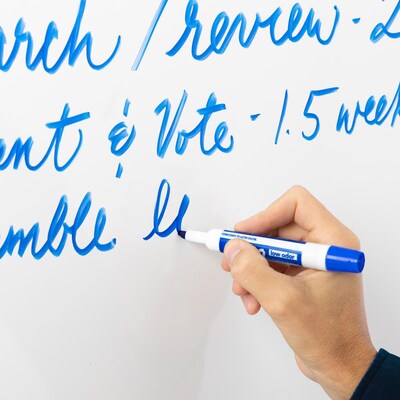 arch / review - 2
ent & Vote - 1.5 week
emble le
low odor